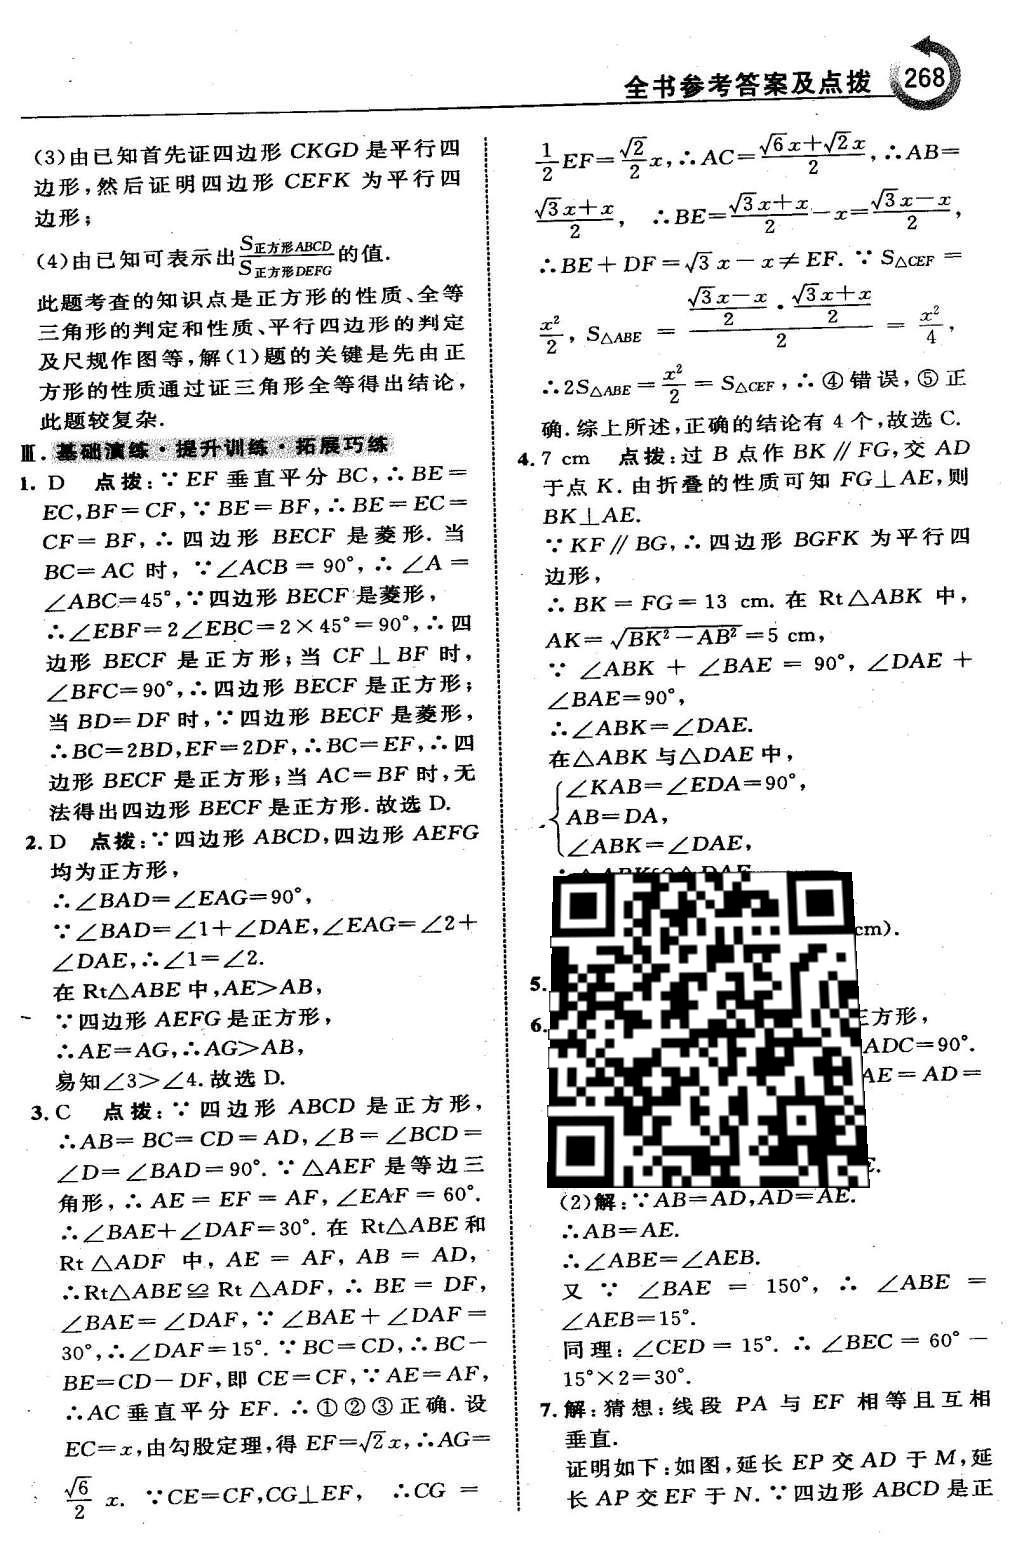 全书参考答案及点拨
268
(3)由已知首先证四边形 CKGD 是平行四
边形,然后证明四边形 CEFK 为平行四
边形;
(4)由已知可表示出 S正方形ABCD/S正方形DEFG 的值.
此题考查的知识点是正方形的性质、全等
三角形的判定和性质、平行四边形的判定
及尺规作图等,解(1)题的关键是先由正
方形的性质通过证三角形全等得出结论,
此题较复杂.
Ⅲ. 基础演练·提升训练·拓展巧练
1. D 点拨:∵EF 垂直平分 BC,∴BE=
EC,BF=CF,∵BE=BF,∴BE=EC=
CF=BF,∴四边形 BECF 是菱形.当
BC=AC 时,∵∠ACB=90°,∴∠A=
∠ABC=45°,∵四边形 BECF 是菱形,
∴∠EBF=2∠EBC=2×45°=90°,∴四
边形 BECF 是正方形;当 CF⊥BF 时,
∠BFC=90°,∴四边形 BECF 是正方形;
当 BD=DF 时,∵四边形 BECF 是菱形,
∴BC=2BD,EF=2DF,∴BC=EF,∴四
边形 BECF 是正方形;当 AC=BF 时,无
法得出四边形 BECF 是正方形.故选 D.
2. D 点拨:∵四边形 ABCD,四边形 AEFG
均为正方形,
∴∠BAD=∠EAG=90°,
∵∠BAD=∠1+∠DAE,∠EAG=∠2+
∠DAE,∴∠1=∠2.
在 Rt△ABE 中,AE>AB,
∵四边形 AEFG 是正方形,
∴AE=AG,∴AG>AB,
易知∠3>∠4.故选 D.
3. C 点拨:∵四边形 ABCD 是正方形,
∴AB=BC=CD=AD,∠B=∠BCD=
∠D=∠BAD=90°.∵△AEF 是等边三
角形,∴AE=EF=AF,∠EAF=60°.
∴∠BAE+∠DAF=30°.在 Rt△ABE 和
Rt△ADF 中,AE=AF,AB=AD,
∴Rt△ABE≌Rt△ADF,∴BE=DF,
∠BAE=∠DAF,∵∠BAE+∠DAF=
30°,∴∠DAF=15°.∵BC=CD,∴BC-
BE=CD-DF,即 CE=CF,∵AE=AF,
∴AC 垂直平分 EF.∴①②③正确.设
EC=x,由勾股定理,得 EF=√2x,∴AG=
√6/2 x. ∵CE=CF,CG⊥EF, ∴CG=
1/2 EF=√2/2 x,∴AC=(√6x+√2x)/2,∴AB=
(√3x+x)/2, ∴BE=(√3x+x)/2-x=(√3x-x)/2,
∴BE+DF=√3x-x≠EF.∵S△CEF=
x²/2,S△ABE=((√3x-x)/2·(√3x+x)/2)/2=x²/4,
∴2S△ABE=x²/2=S△CEF,∴④错误,⑤正
确.综上所述,正确的结论有 4 个,故选 C.
4. 7 cm 点拨:过 B 点作 BK∥FG,交 AD
于点 K.由折叠的性质可知 FG⊥AE,则
BK⊥AE.
∵KF∥BG,∴四边形 BGFK 为平行四
边形,
∴BK=FG=13 cm.在 Rt△ABK 中,
AK=√(BK²-AB²)=5 cm,
∵∠ABK+∠BAE=90°,∠DAE+
∠BAE=90°,
∴∠ABK=∠DAE.
在△ABK 与△DAE 中,
{∠KAB=∠EDA=90°,
AB=DA,
∠ABK=∠DAE,
cm).
5.
6.
方形,
ADC=90°.
AE=AD=
(2)解:∵AB=AD,AD=AE.
∴AB=AE.
∴∠ABE=∠AEB.
又∵∠BAE=150°,∴∠ABE=
∠AEB=15°.
同理:∠CED=15°.∴∠BEC=60°-
15°×2=30°.
7. 解:猜想:线段 PA 与 EF 相等且互相
垂直.
证明如下:如图,延长 EP 交 AD 于 M,延
长 AP 交 EF 于 N.∵四边形 ABCD 是正